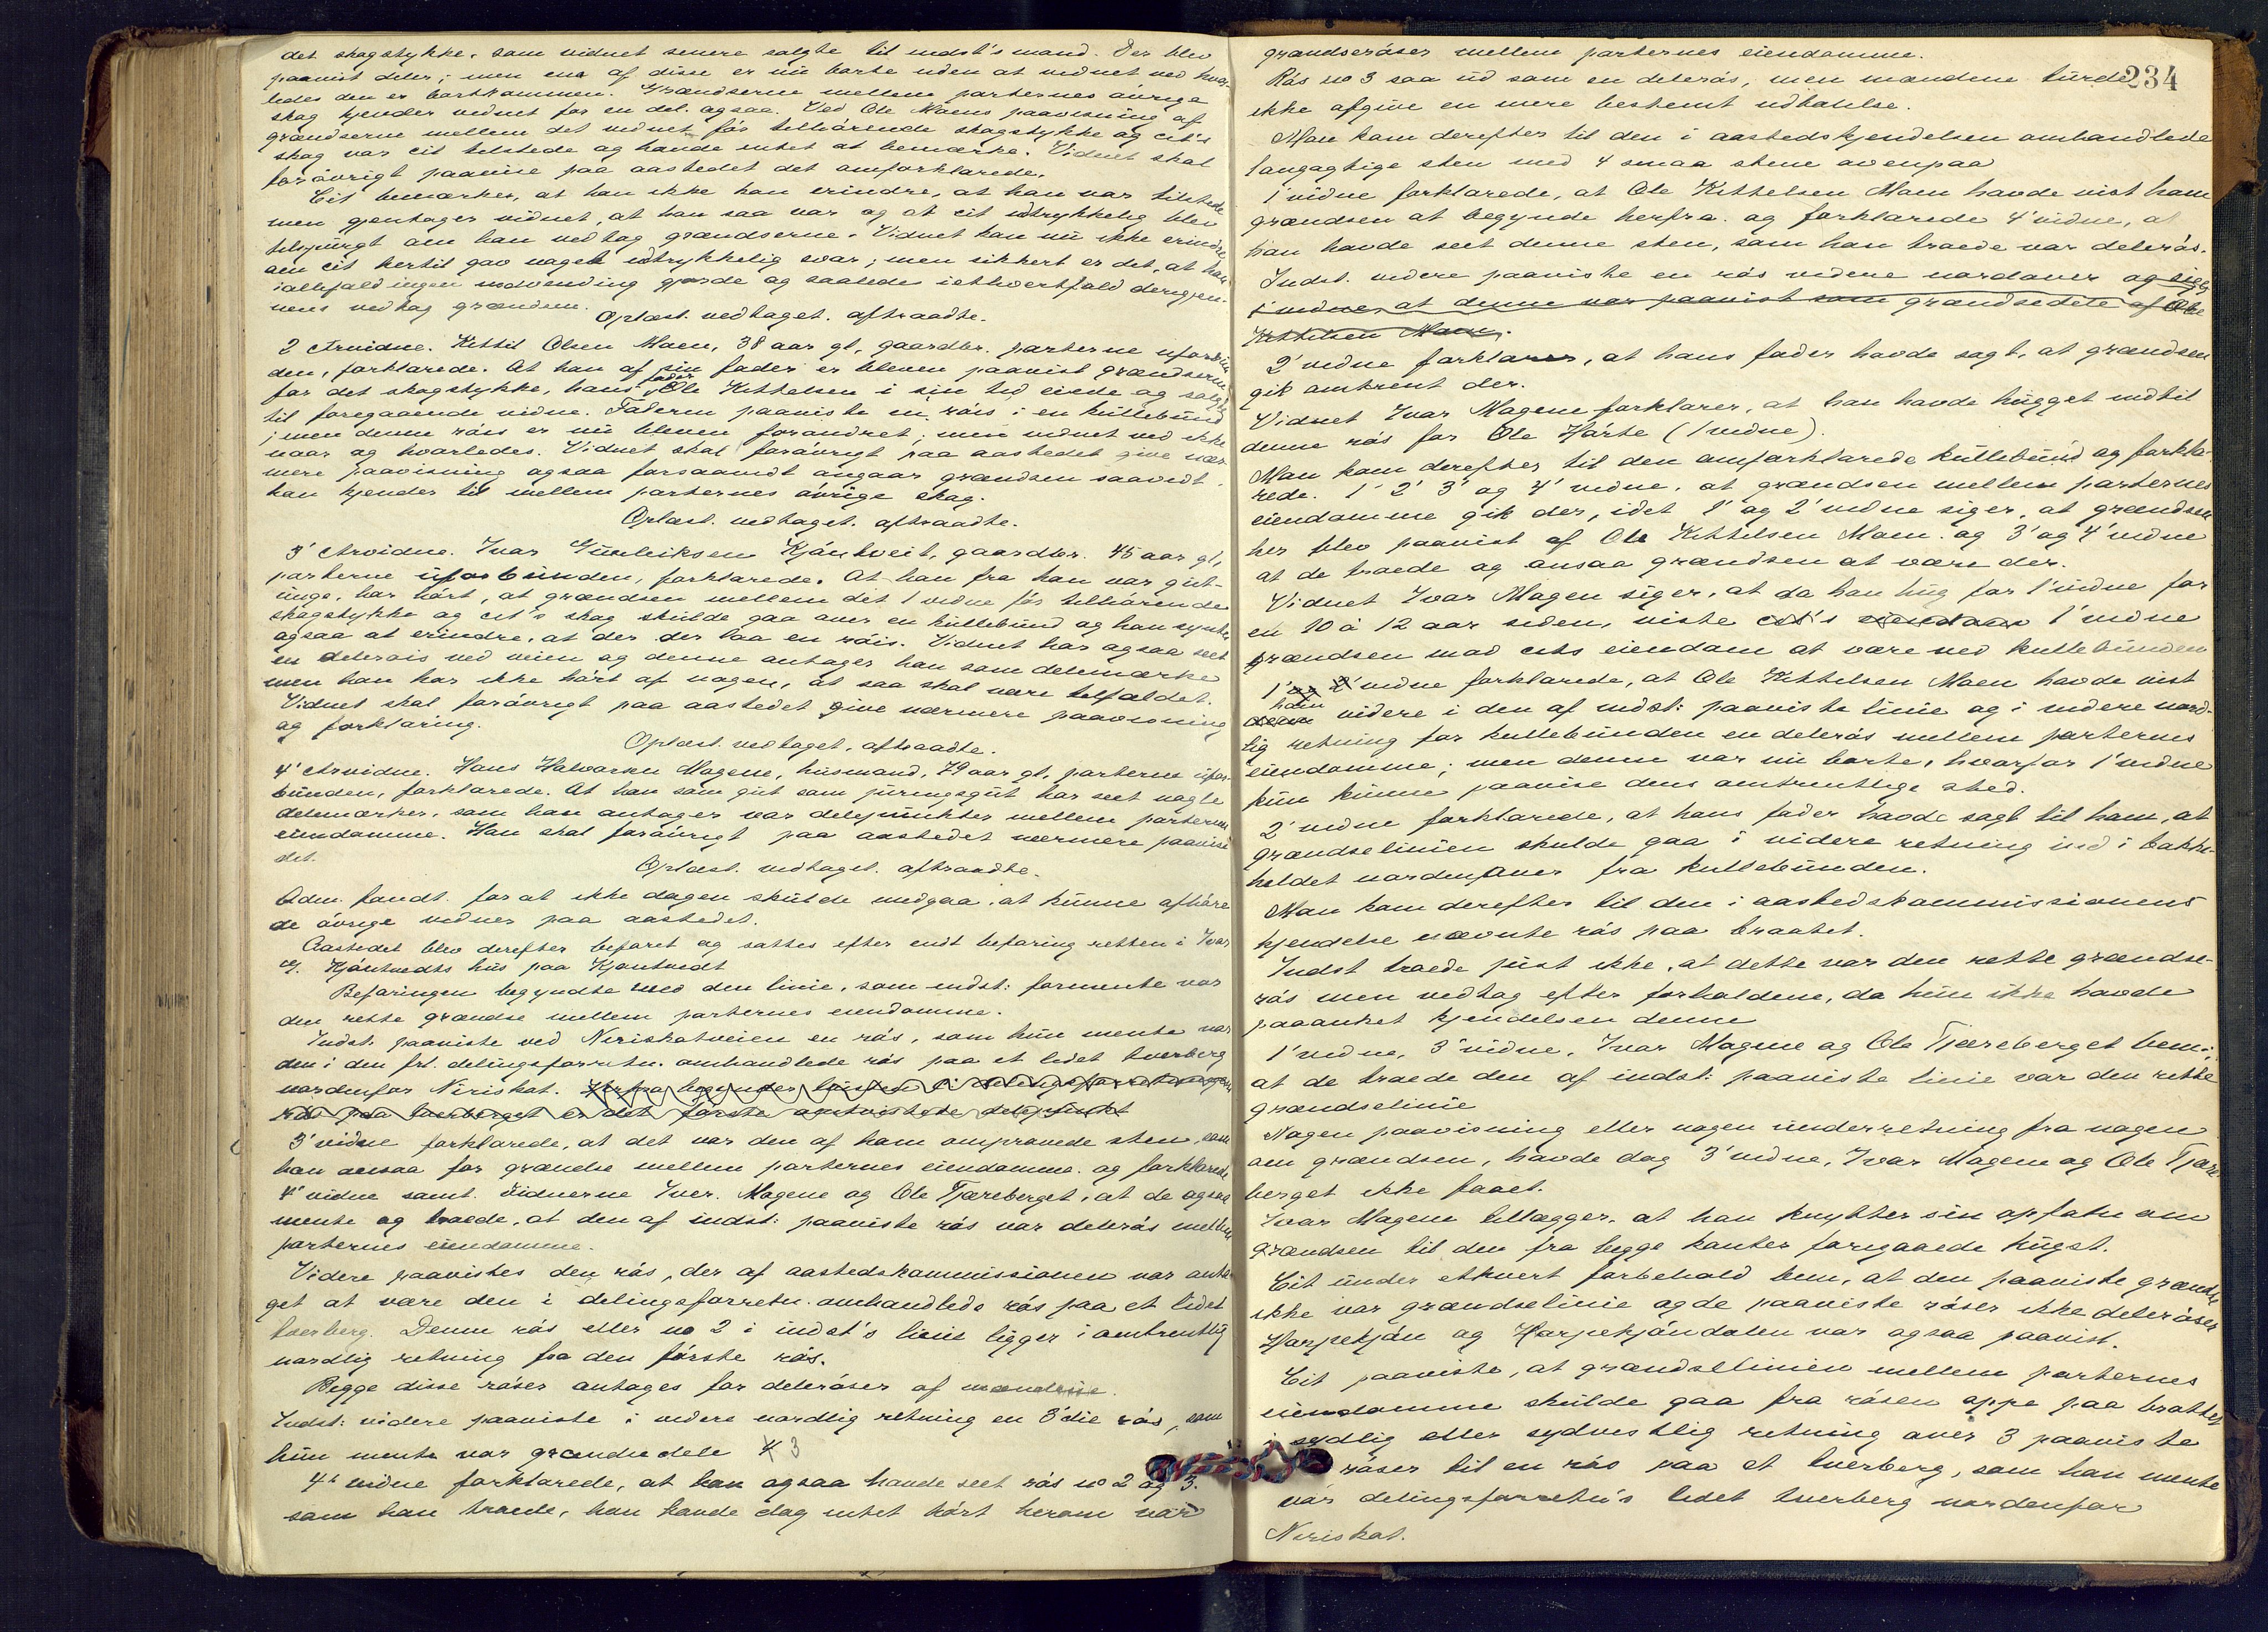 det skogstykke, som vidnet senere solgte til indst's mand. Der blev
paavist deler; men ene af disse er nu borte uden at vidnet ved hvor-
ledes den er bortkommen. Grændserne mellem parternes øvrige
skog kjender vidnet for en del ogsaa. Ved Ole Moens paavisning af
grændserne mellem det vidnet før tilhørende skogstykke og cit's
skog var cit tilstede og havde intet at bemærke. Vidnet skal
forøvrigt paavise paa aastedet det omforklarede.
Cit bemærker, at han ikke kan erindre, at han var tilstede
men gjentager vidnet, at han saa var og at cit udtrykkelig blev
tilspurgt om han vedtog grændserne. Vidnet kan nu ikke erindre
om cit hertil gav noget udtrykkelig svar; men sikkert er det, at han
iallefald ingen indvending gjorde og saaledes i ethvertfald derigjen-
nem vedtog grændsen.
Oplæst. vedtaget. aftraadte.
2 Arvidne. Kittil Olsen Moen, 38 aar gl, gaardbr. parterne uforbun
den, forklarede. At han af sin fader er bleven paavist grændserne
for det skogstykke, hans fader Ole Kittelsen i sin tid eiede og solgte
til foregaaende vidne. Faderen paaviste en røis i en kullebund
; men denne røis er nu bleven forandret; men vidnet ved ikke
naar og hvorledes. Vidnet skal forøvrigt paa aastedet give nær-
mere paavisning ogsaa forsaavidt angaar grændsen saavidt
han kjender til mellem parternes øvrige skog.
Oplæst. vedtaget. aftraadte.
3' Arvidne. Ivar Gunleiksen Kjøntveit, gaardbr. 45 aar gl,
parterne uforbunden, forklarede. At han fra han var gut-
unge, har hørt, at grændsen mellem det 1 vidne før tilhørende
skogstykke og cit's skog skulde gaa over en kullebund og han synes
ogsaa at erindre, at der der laa en røis. Vidnet har ogsaa seet
en delerøis ved veien og denne antager han som delemærke
men han har ikke hørt af nogen, at saa skal være tilfældet.
Vidnet skal forøvrigt paa aastedet give nærmere paavisning
og forklaring.
Oplæst. vedtaget. aftraadte.
4' Arvidne. Hans Halvorsen Mogene, husmand, 79 aar gl. parterne ufor-
bunden, forklarede. At han som gut som juringsgut har seet nogle
delemærker, som han antager var delepunkter mellem parternes
eiendomme. Han skal forøvrigt paa aastedet nærmere paavise
det.
Oplæst. vedtaget. aftraadte.
Adm. fandt for at ikke dagen skulde medgaa, at kunne afhøre
de øvrige vidner paa aastedet.
Aastedet blev derefter befaret og sattes efter endt befaring retten i Ivar
G. Kjøntvedts hus paa Kjøntvedt
Befaringen begyndte med den linie, som indst: formente var
den rette grændse mellem parternes eiendomme.
Indst. paaviste ved Neriskotveien en røs, som hun mente var
den i den frl. delingsforretn. omhandlede røs paa et lidet tverberg
nordenfor Neriskot.
røs paa tverberget er det første omtvistede delepunkt
3' vidne forklarede, at det var den af ham omprovede sten, som
han ansaa for grændse mellem parternes eiendomme. og forklarede
4' vidne samt vidnerne Iver Mogene og Ole Tjæreberget, at de ogsaa
mente og troede, at den af indst: paaviste røs var delerøs mellem
parternes eiendomme.
Videre paavistes den røs, der af aastedskommissionen var anta-
get at være den i delingsforretn. omhandlede røs paa et lidet
tverberg. Denne røs eller no 2 i indst's linie ligger i omtrentlig
nordlig retning fra den første røs.
Begge disse røser antages for delerøser af mændene.
Indst: videre paaviste i videre nordlig retning en 3'die røs, som
hun mente var grændsedele 3
4' vidne forklarede, at han ogsaa havde seet røs no 2 og 3.
som han troede, han havde dog intet hørt herom var
234
grændserøser mellem parternes eiendomme.
Røs no 3 saa ud som en delerøs, men mændene turde
ikke afgive en mere bestemt udtalelse.
Man kom derefter til den i aastedskjendelsen omhandlede
langagtige sten med 4 smaa stene ovenpaa
1' vidne forklarede, at Ole Kittelsen Moen havde vist ham
grændsen at begynde herfra. og forklarede 4' vidne, at
han havde seet denne sten, som han troede var delerøs.
Indst. videre paaviste en røs videre nordover og siger
1' vidne, at denne var paavist som grændsedele af Ole
Kittelsen Moen.
2' vidne forklarer, at hans fader havde sagt, at grændsen
gik omtrent der.
Vidnet Ivar Mogene forklarer, at han havde hugget indtil
denne røs for Ole Hørte (1 vidne).
Man kom derefter til den omforklarede kullebund og forkla-
rede. 1' 2' 3' og 4' vidne, at grændsen mellem parternes
eiendomme gik der, idet 1' og 2' vidne siger, at grændsen
her blev paavist af Ole Kittelsen Moen. og 3' og 4' vidne
at de troede og ansaa grændsen at være der.
Vidnet Ivar Mogen siger, at da han hug for 1' vidne for
en 10 à 12 aar siden, viste cit's eiendom 1' vidne
grændsen mod cits eiendom at være ved kullebunden
1' og 2' vidne forklarede, at Ole Kittelsen Moen havde vist
ham videre i den af indst: paaviste linie og i videre nord-
lig retning for kullebunden en delerøs mellem parternes
eiendomme; men denne var nu borte, hvorfor 1' vidne
kun kunne paavise dens omtrentlige sted.
2' vidne forklarede, at hans fader havde sagt til ham, at
grændselinien skulde gaa i videre retning ind i bakke-
heldet nordenover fra kullebunden.
Man kom derefter til den i aastedskommissionens
kjendelse nævnte røs paa braatet.
Indst troede just ikke, at dette var den rette grændse-
røs men vedtog efter forholdene, da hun ikke havde
paaanket kjendelsen denne
1' vidne, 3' vidne, Ivar Mogene og Ole Tjæreberget bem:,
at de troede den af indst: paaviste linie var den rette
grændselinie
Nogen paavisning eller nogen underretning fra nogen
om grændsen, havde dog 3' vidne, Ivar Mogene og Ole Tjære-
berget ikke faaet.
Ivar Mogene tillægger, at han knytter sin opfatn om
grændsen til den fra begge kanter foregaaede hugst.
Cit under ethvert forbehold bem, at den paaviste grændse
ikke var grændselinie og de paaviste røser ikke delerøser
Harpekjøn og Harpekjøndalen var ogsaa paavist.
Cit paaviste, at grændselinien mellem parternes
eiendomme skulde gaa fra røsen oppe paa brattet
i sydlig eller sydvestlig retning over 3 paaviste
røser til en røs paa et tverberg, som han mente
var delingsforretn's lidet tverberg nordenfor
Neriskot.